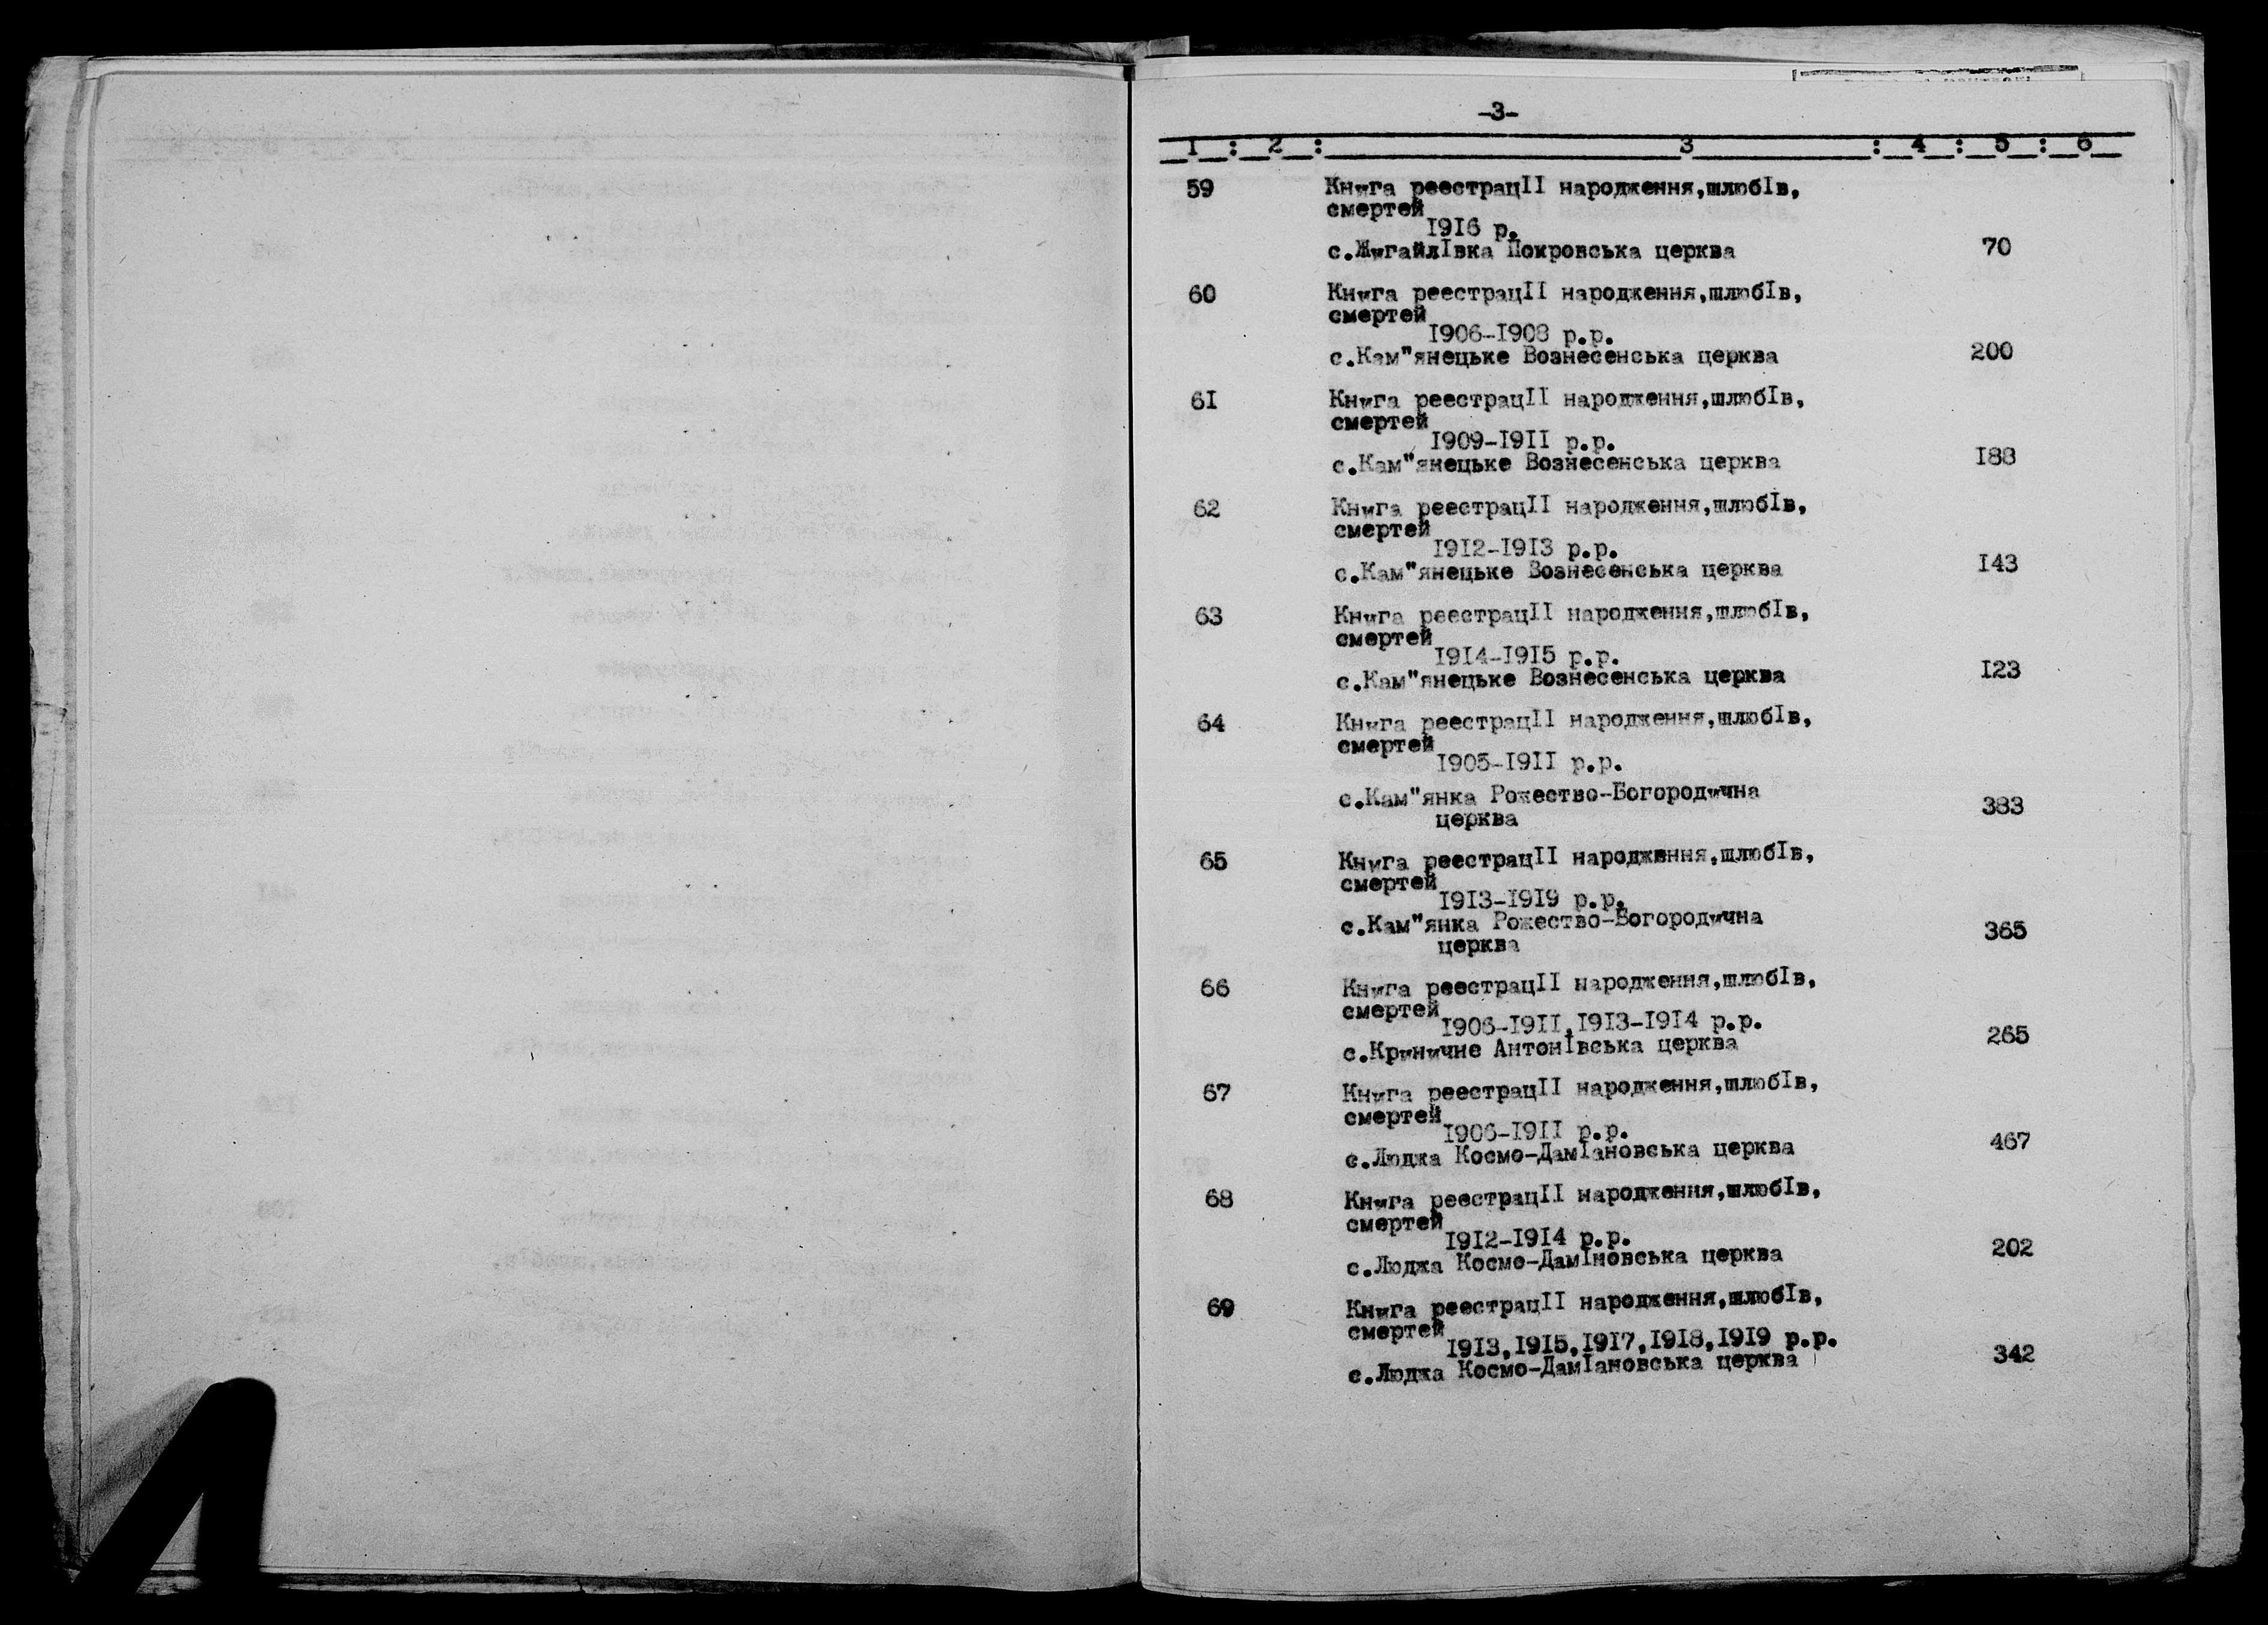 -3-
1 : 2 : 3 : 4 : 5 : 6
59 Книга реестрацІІ народження,шлюбІв,
смертей
І9І6 р.
с.ЖигайлІвка Покровська церква 70
60 Книга реестрацІІ народження,шлюбІв,
смертей
І906-І908 р.р.
с.Кам"янецьке Вознесенська церква 200
6І Книга реестрацІІ народження,шлюбІв,
смертей
І909-І9ІІ р.р.
с.Кам"янецьке Вознесенська церква І88
62 Книга реестрацІІ народження,шлюбІв,
смертей
І9І2-І9І3 р.р.
с.Кам"янецьке Вознесенська церква І43
63 Книга реестрацІІ народження,шлюбІв,
смертей
І9І4-І9І5 р.р.
с.Кам"янецьке Вознесенська церква І23
64 Книга реестрацІІ народження,шлюбІв,
смертей
І905-І9ІІ р.р.
с.Кам"янка Рожество-Богородична 383
церква
65 Книга реестрацІІ народження,шлюбІв,
смертей
І9І3-І9І9 р.р.
с.Кам"янка Рожество-Богородична 365
церква
66 Книга реестрацІІ народження,шлюбІв,
смертей
І906-І9ІІ,І9І3-І9І4 р.р.
с.Криничне АнтонІвська церква 265
67 Книга реестрацІІ народження,шлюбІв,
смертей
І906-І9ІІ р.р.
с.Люджа Космо-ДамІановська церква 467
68 Книга реестрацІІ народження,шлюбІв,
смертей
І9І2-І9І4 р.р.
с.Люджа Космо-ДамІновська церква 202
69 Книга реестрацІІ народження,шлюбІв,
смертей
І9І3,І9І5,І9І7,І9І8,І9І9 р.р.
с.Люджа Космо-ДамІановська церква 342